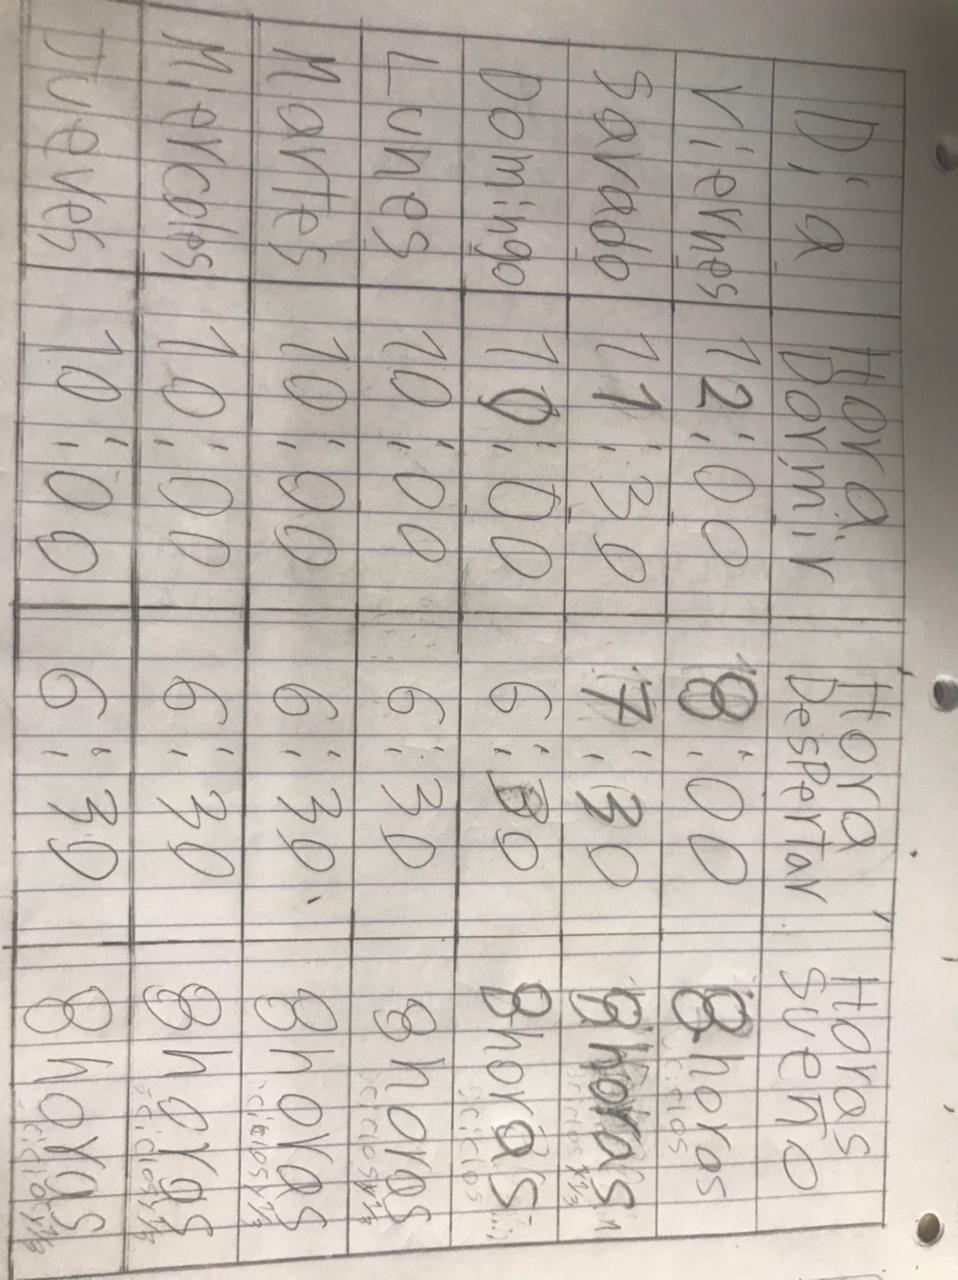 Día Hora Dormir Hora Despertar Horas Sueño
Viernes 12:00 8:00 8 horas
ciclos
Savado 11:30 7:30 8 horas
ciclos y 1/3
Domingo 10:00 6:30 8 horas
ciclos
Lunes 10:00 6:30 8 horas
ciclos y 1/3
Martes 10:00 6:30 8 horas
ciclos y 1/3
Miercoles 10:00 6:30 8 horas
ciclos y 1/3
Jueves 10:00 6:30 8 horas
ciclos y 1/3